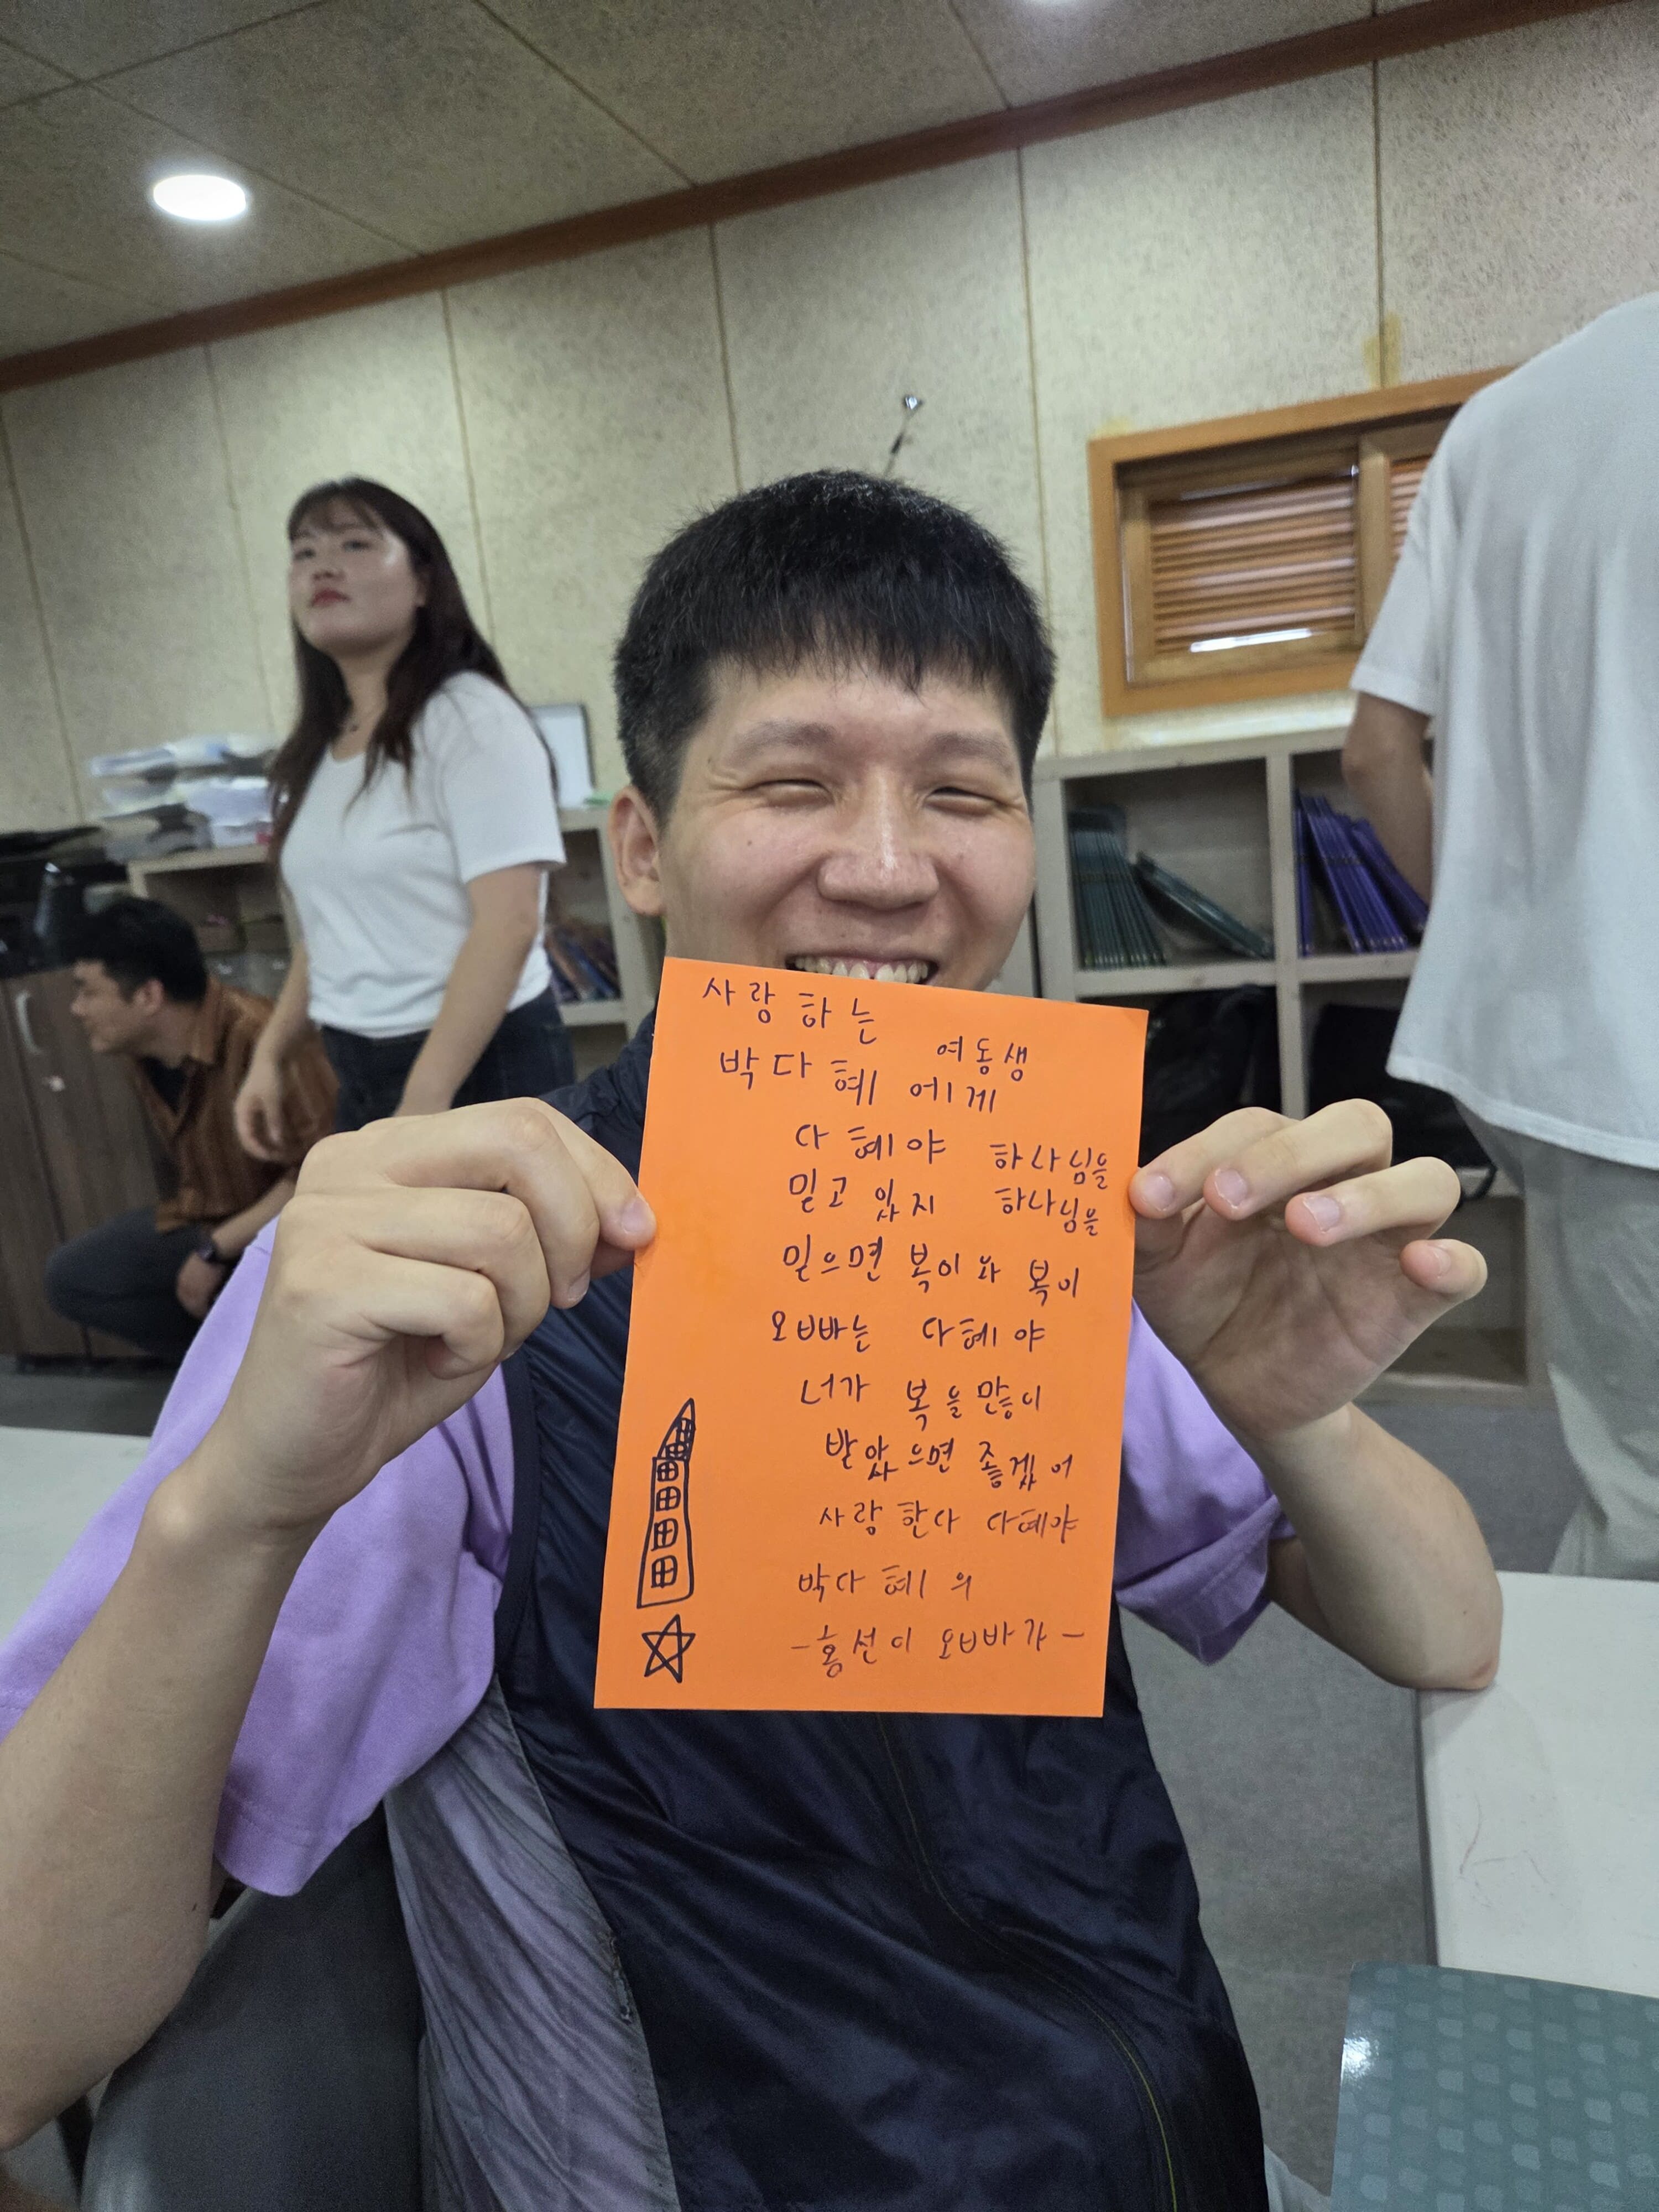 사랑하는
박다혜 여동생에게
다혜야 하나님을
믿고 있지 하나님을
믿으면 복이 와 복이
오빠는 다혜야
너가 복을 많이
받았으면 좋겠어
사랑한다 다혜야
박다혜의
-홍선이 오빠가-